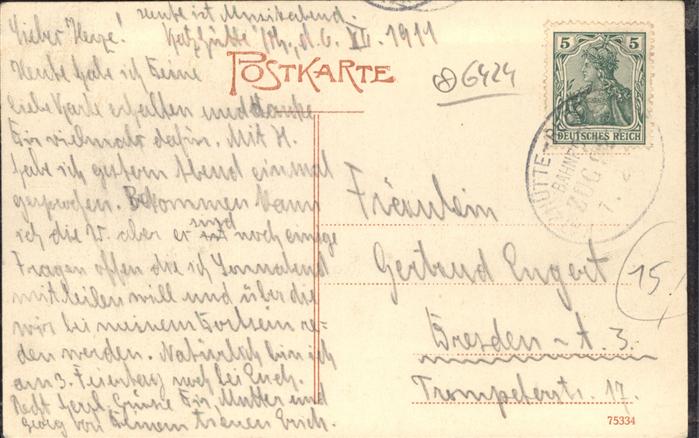 heute ist Musikabend.
Lieber Herze! Katzhütte i/Th. d. 6. VII. 1911
POSTKARTE
6424
5 5
DEUTSCHES REICH
Heute habe ich Deine
liebe Karte erhalten und danke
Dir vielmals dafür. Mit H.
habe ich gestern Abend einmal
gesprochen. Bekommen kann
ich die W. aber er sind noch einige
Fragen offen die ich Sonnabend
mitteilen will und über die
wir bei meinem Dortsein re-
den werden. Natürlich bin ich
am 3. Feiertag noch bei Euch.
Recht herzl. Grüße Dir, Mutter und
Georg von Deinem treuen Erich.
Fräulein
Gertrud Engert
Dresden - A. 3.
Trompeterstr. 17.
BAHNPOST
ZUG
15
75334